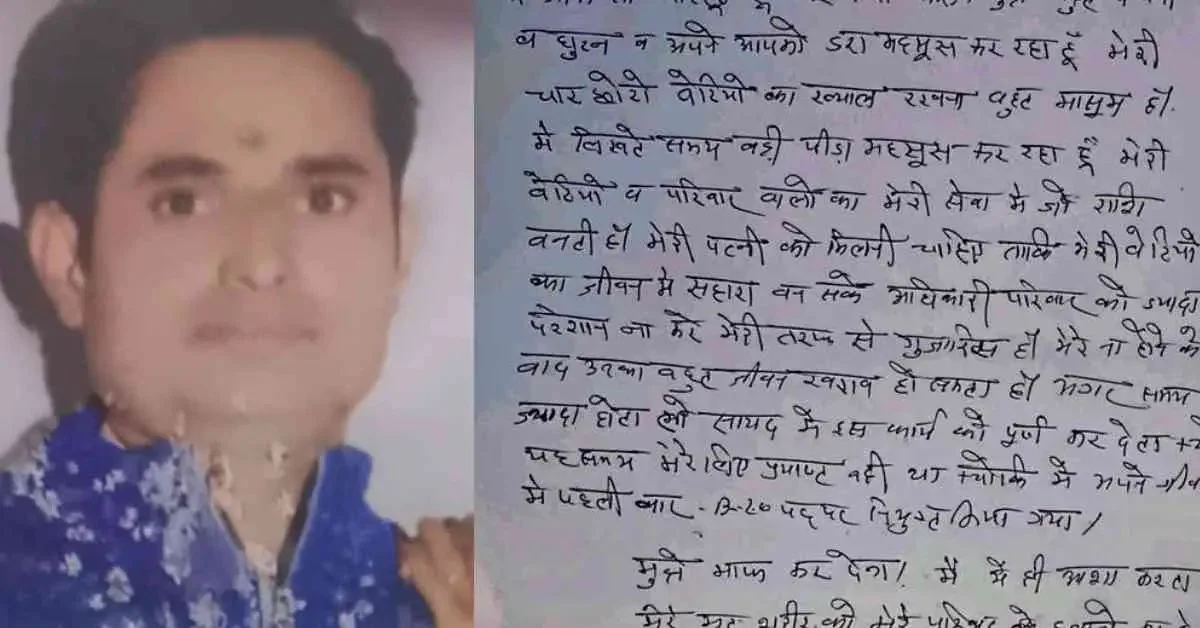 व घुटन व अपने आपको डरा महसूस कर रहा हूँ मेरी
चार छोटी बेटियो का ख्याल रखना बहुट मासूम हो.
मे लिखते समय बड़ी पीड़ा महसूस कर रहा हूँ मेरी
बेटियो व परिवार वालो का मेरी सेवा मे जो राशी
बनटी हो मेरी पत्नी को मिलनी चाहिए ताकि मेरी बेटियो
का जीवन मे सहारा बन सके अधिकारी परिवार को ज्यादा
परेशान ना करे मेरी तरफ से गुजारिस हो मेरे ना होने के
बाद उनका बहुट जीवन खराब हो सकटा हो अगर समय
ज्यादा होटा तो सायद मै इस कार्य को पूर्ण कर देता
यह समय मेरे लिए प्रयाप्ट नही था क्योकि मै अपने
मे पहली बार पद पर नियुक्त किया गया।
मुझे माफ कर देना। मै ये ही आशा करता
मेरे शरीर को मेरे परिवार